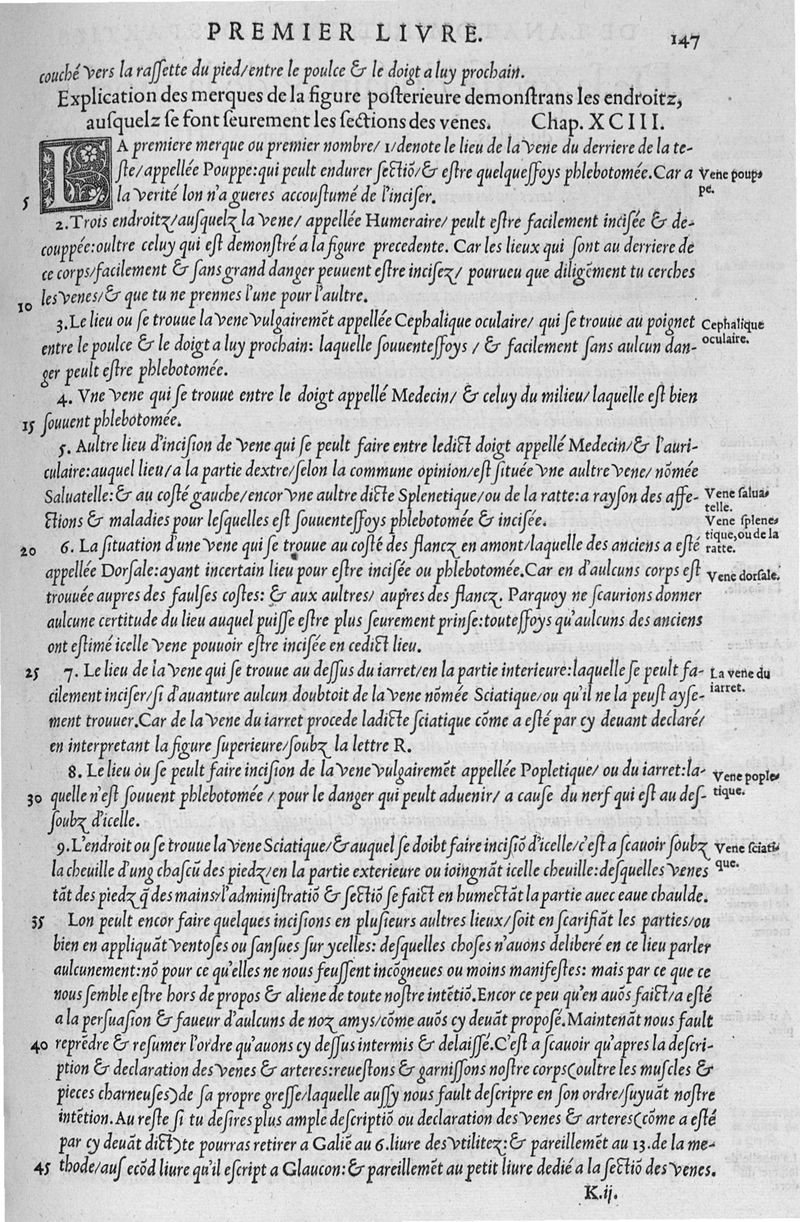 PREMIER LIVRE. 147
couché vers la raſſette du pied/entre le poulce & le doigt a luy prochain.
Explication des merques de la figure poſterieure demonſtrans les endroitz,
auſquelz ſe font ſeurement les ſections des venes. Chap. XCIII.
LA premiere merque ou premier nombre/ 1/denote le lieu de la vene du derriere de la te-
ſte/appellée Pouppe:qui peult endurer ſectiõ/& eſtre quelqueſſoys phlebotomée.Car a Vene poup-
5 la verité lon n'a gueres accouſtumé de l'inciſer. pe.
2.Trois endroitz/auſquelz la vene/ appellée Humeraire/ peult eſtre facilement inciſée & de-
couppée:oultre celuy qui eſt demonſtré a la figure precedente. Car les lieux qui ſont au derriere de
ce corps/facilement & ſans grand danger peuuent eſtre inciſez/ pourueu que diligẽment tu cerches
10 les venes/& que tu ne prennes l'une pour l'aultre.
3.Le lieu ou ſe trouue la vene vulgairemẽt appellée Cephalique oculaire/ qui ſe trouue au poignet Cephalique
entre le poulce & le doigt a luy prochain: laquelle ſouuenteſſoys / & facilement ſans aulcun dan- oculaire.
ger peult eſtre phlebotomée.
4. Vne vene qui ſe trouue entre le doigt appellé Medecin/ & celuy du milieu/ laquelle eſt bien
15 ſouuent phlebotomée.
5. Aultre lieu d'inciſion de vene qui ſe peult faire entre ledict doigt appellé Medecin/& l'auri-
culaire:auquel lieu/a la partie dextre/ſelon la commune opinion/eſt ſituée vne aultre vene/ nõmée
Saluatelle:& au coſté gauche/encor vne aultre dicte Splenetique/ou de la ratte:a rayſon des affe- Vene ſalua-
telle.
ctions & maladies pour leſquelles eſt ſouuenteſſoys phlebotomée & inciſée. Vene ſplene-
20 6. La ſituation d'une vene qui ſe trouue au coſté des flancz en amont/laquelle des anciens a eſté tique,ou de la
ratte.
appellée Dorſale:ayant incertain lieu pour eſtre inciſée ou phlebotomée.Car en d'aulcuns corps eſt Vene dorſale.
trouuée aupres des faulſes coſtes: & aux aultres/ aupres des flancz. Parquoy ne ſcaurions donner
aulcune certitude du lieu auquel puiſſe eſtre plus ſeurement prinſe:touteſſoys qu'aulcuns des anciens
ont eſtimé icelle vene pouuoir eſtre inciſée en cedict lieu.
25 7. Le lieu de la vene qui ſe trouue au deſſus du iarret/en la partie interieure:laquelle ſe peult fa- La vene du
cilement inciſer/ſi d'auanture aulcun doubtoit de la vene nõmée Sciatique/ou qu'il ne la peuſt ayſe- iarret.
ment trouuer.Car de la vene du iarret procede ladicte ſciatique cõme a eſté par cy deuant declaré/
en interpretant la figure ſuperieure/ſoubz la lettre R.
8. Le lieu ou ſe peult faire inciſion de la vene vulgairemẽt appellée Popletique/ ou du iarret:la- Vene pople-
30 quelle n'eſt ſouuent phlebotomée / pour le danger qui peult aduenir/ a cauſe du nerf qui eſt au deſ- tique.
ſoubz d'icelle.
9.L'endroit ou ſe trouue la vene Sciatique/&auquel ſe doibt faire inciſiõ d'icelle/c'eſt a ſcauoir ſoubz Vene ſciati-
la cheuille d'ung chaſcũ des piedz/en la partie exterieure ou ioingnãt icelle cheuille:deſquelles venes que.
tãt des piedz q̃ des mains/l'adminiſtratiõ & ſectiõ ſe faict en humectãt la partie auec eaue chaulde.
35 Lon peult encor faire quelques inciſions en pluſieurs aultres lieux/ſoit en ſcarifiãt les parties/ou
bien en appliquãt ventoſes ou ſanſues sur ycelles: deſquelles choſes n'auons deliberé en ce lieu parler
aulcunement:nõ pour ce qu'elles ne nous feuſſent incõgneues ou moins manifeſtes: mais par ce que ce
nous ſemble eſtre hors de propos & aliene de toute noſtre intẽtiõ.Encor ce peu qu'en auõs faict/a eſté
a la perſuaſion & faueur d'aulcuns de noz amys/cõme auõs cy deuãt propoſé.Maintenãt nous fault
40 reprẽdre & reſumer l'ordre qu'auons cy deſſus intermis & delaiſſé.C'eſt a ſcauoir qu'apres la deſcri-
ption & declaration des venes & arteres:reueſtons & garniſſons noſtre corps(oultre les muſcles &
pieces charneuſes)de ſa propre greſſe/laquelle auſſy nous fault deſcripre en ſon ordre/ſuyuãt noſtre
intẽtion.Au reſte ſi tu deſires plus ample deſcriptiõ ou declaration des venes & arteres(cõme a eſté
par cy deuãt dict)te pourras retirer a Galiẽ au 6.liure des vtilitez:& pareillemẽt au 13.de la me-
45 thode/auſ ecõd liure qu'il eſcript a Glaucon:& pareillemẽt au petit liure dedié a la ſectiõ des venes.
K.ij.